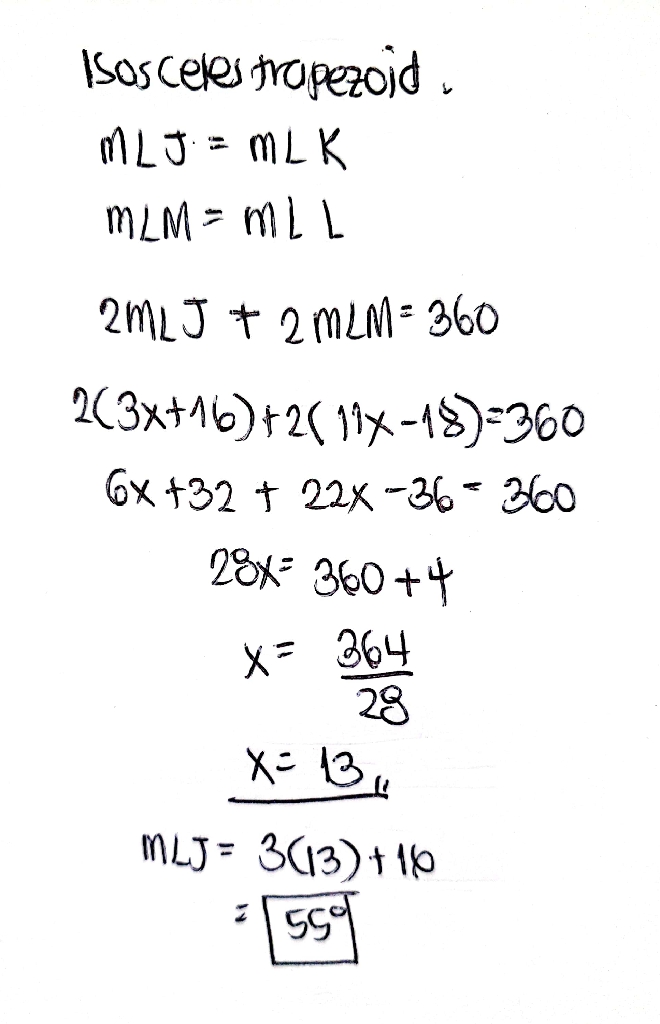 Isosceles trapezoid.
m∠J = m∠K
m∠M = m∠L
2m∠J + 2m∠M = 360
2(3x+16)+2(11x-18)=360
6x+32 + 22x-36 = 360
28x = 360+4
x = 364
28
x = 13 "
m∠J = 3(13)+16
= 55°